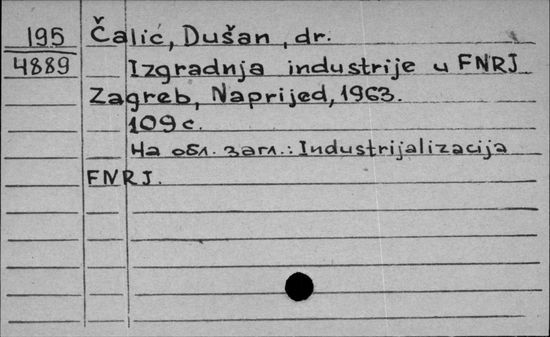 195 Čalić, Dušan, dr.
4889 Izgradnja industrije u FNRJ
Zagreb, Naprijed, 1963.
109 c.
На обл. загл.: Industrijalizacija
FNRJ.